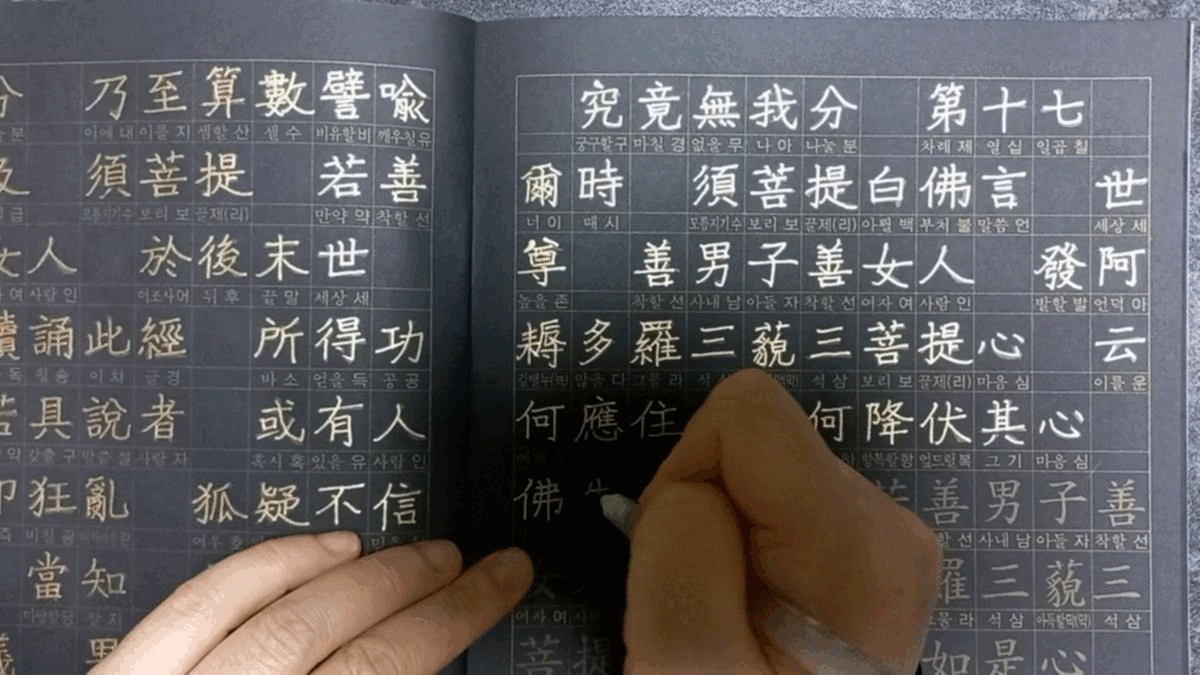 分 乃至算數譬喩
분 이에 내 이를 지 셈할 산 셀 수 비유할 비 깨우칠 유
須菩提 若善
모름지기 수 보리 보 끌제(리) 만약 약 착할 선
女人 於後末世
여 사람 인 어조사 어 뒤 후 끝 말 세상 세
讀誦此經 所得功
독 욀 송 이 차 글 경 바 소 얻을 득 공 공
若具說者 或有人
약 갖출 구 말씀 설 사람 자 혹시 혹 있을 유 사람 인
卽狂亂 狐疑不信
즉 미칠 광 여우 호
當知
마땅할 당 알 지
究竟無我分 第十七
궁구할 구 마칠 경 없을 무 나 아 나눌 분 차례 제 열 십 일곱 칠
爾時 須菩提白佛言 世
너 이 때 시 모름지기 수 보리 보 끌제(리) 아뢸 백 부처 불 말씀 언 세상 세
尊 善男子善女人 發阿
높을 존 착할 선 사내 남 아들 자 착할 선 여자 여 사람 인 발할 발 언덕 아
耨多羅三藐三菩提心 云
김맬누(녹) 많을 다 그물 라 석 삼 석 삼 보리 보 끌제(리) 마음 심 이를 운
何應住 何降伏其心
항복할 항 엎드릴 복 그 기 마음 심
佛 善男子善
할 선 사내 남 아들 자 착할 선
女 羅三藐三
여자 여 그물 라 석 삼 아득할막(막) 석 삼
菩提 如是心